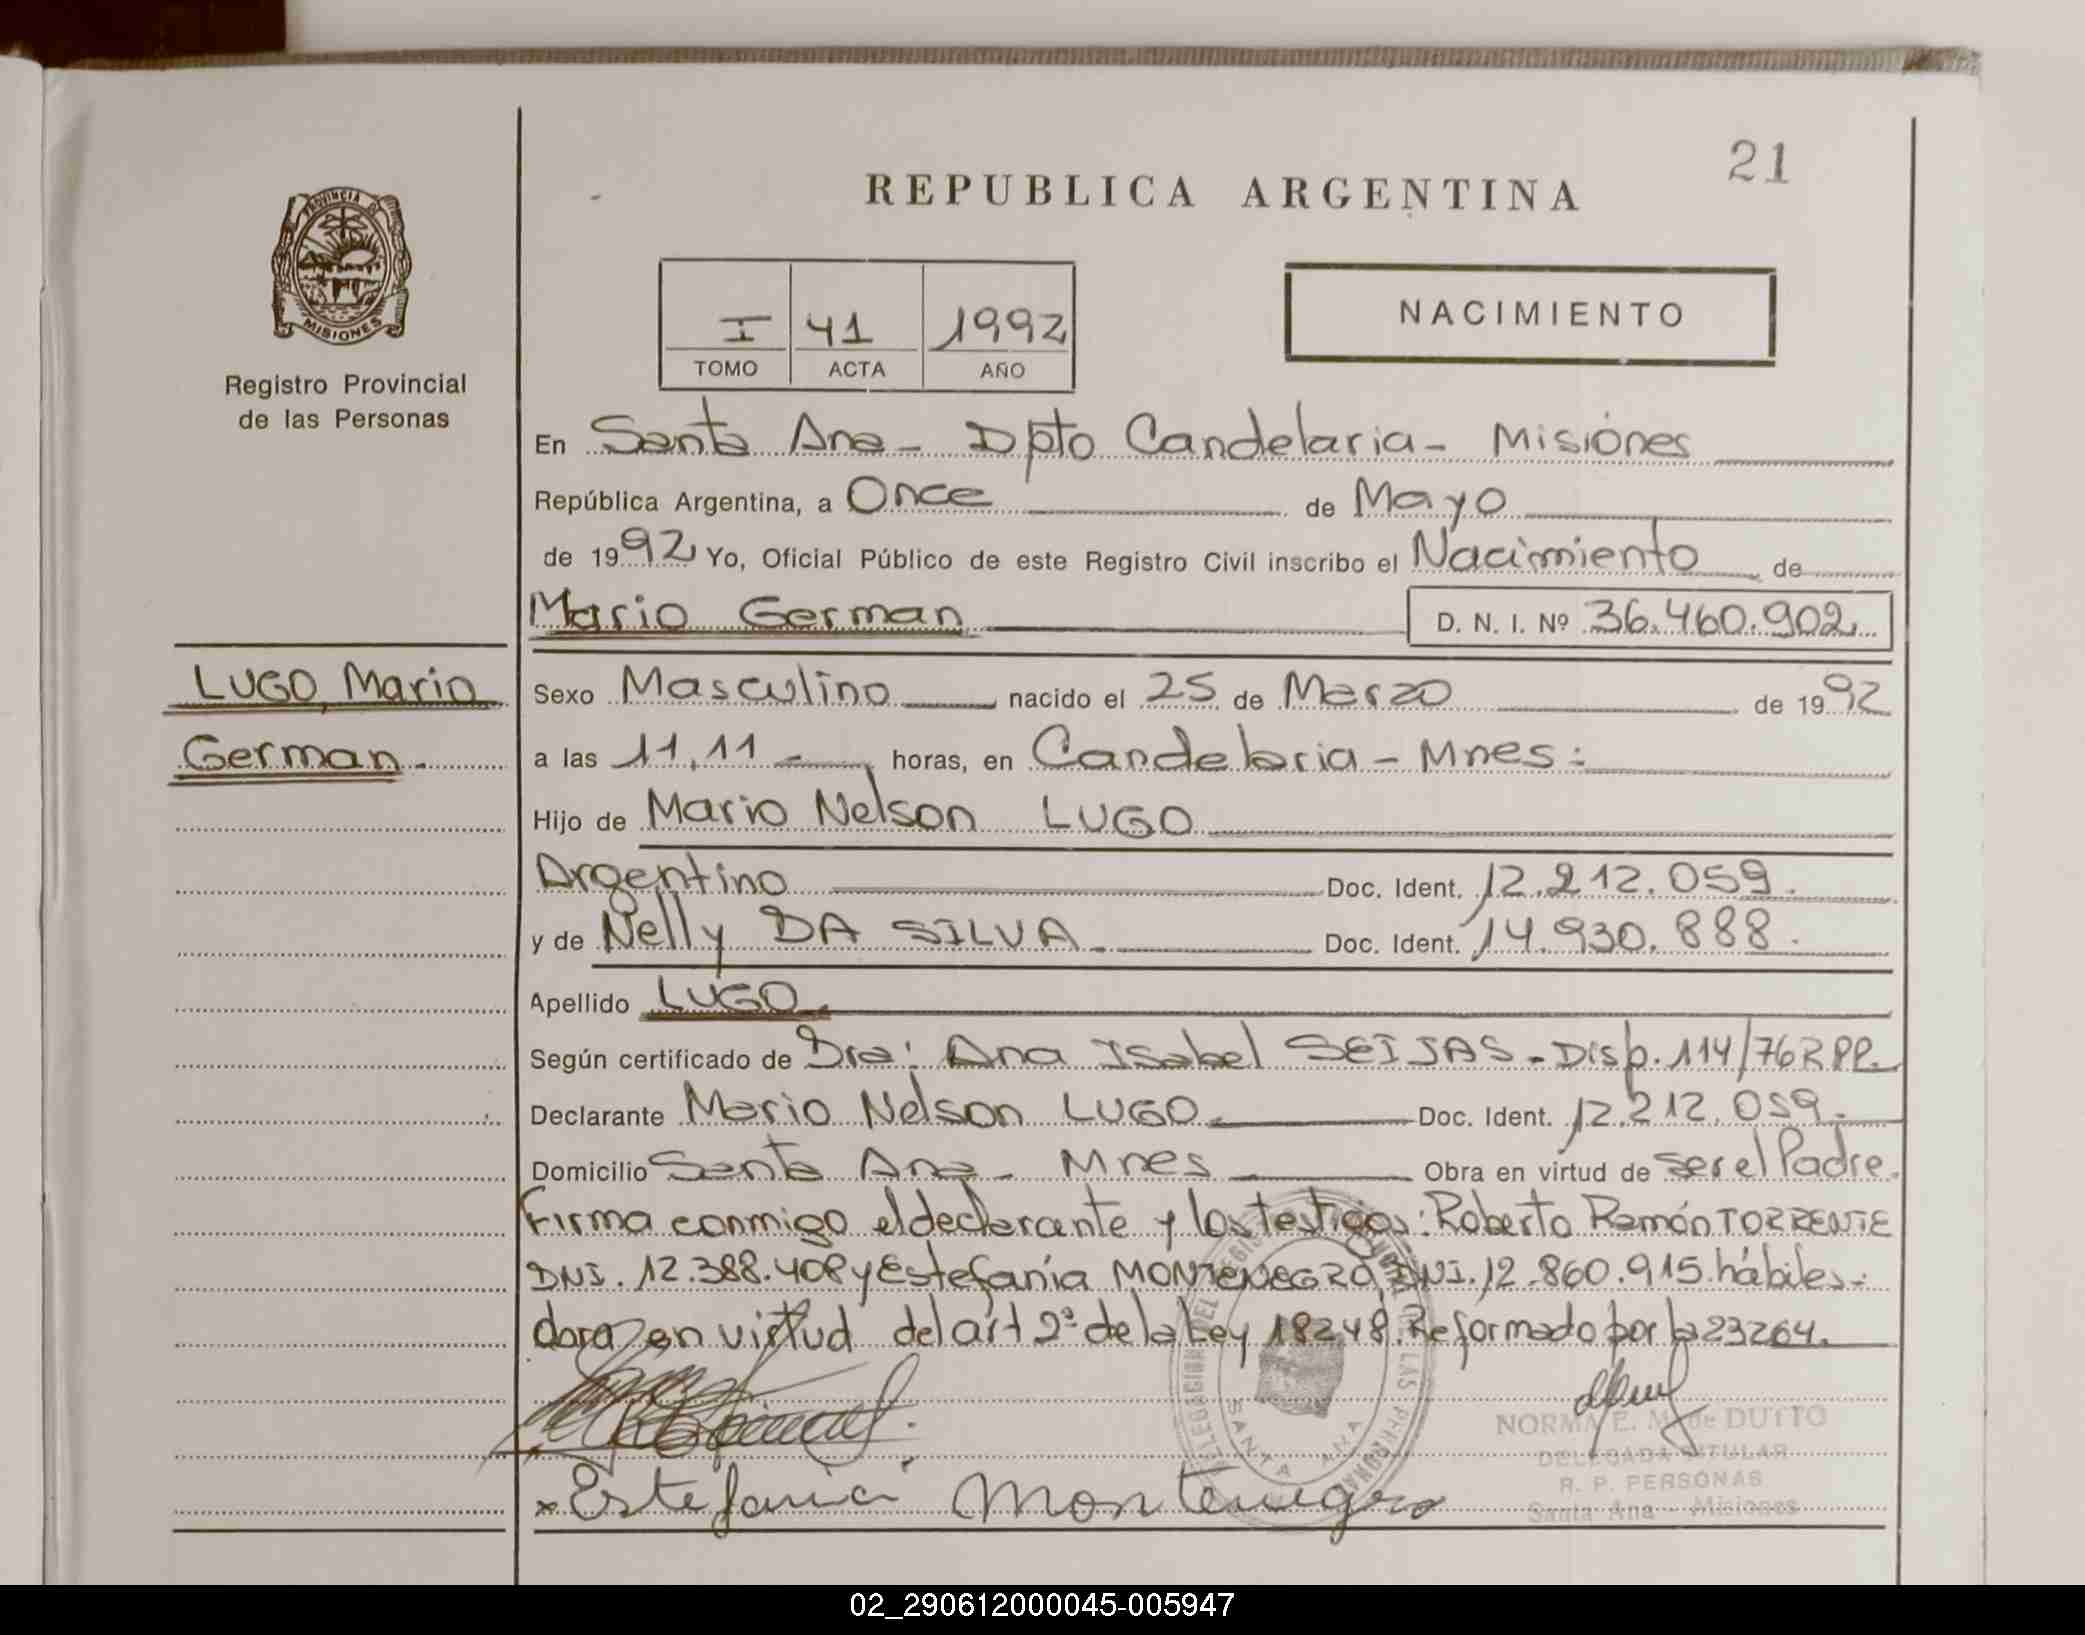 21
REPUBLICA ARGENTINA
PROVINCIA DE
MISIONES
Registro Provincial
de las Personas
I 41 1992
TOMO ACTA AÑO
NACIMIENTO
En Santa Ana - Dpto Candelaria - Misiones
República Argentina, a Once de Mayo
de 1992 Yo, Oficial Público de este Registro Civil inscribo el Nacimiento de
Mario German D. N. I. Nº 36.460.902
LUGO, Mario
German.
Sexo Masculino nacido el 25 de Marzo de 1992
a las 11,11 horas, en Candelaria - Mnes:
Hijo de Mario Nelson LUGO
Argentino Doc. Ident. 12.212.059.
y de Nelly DA SILVA. Doc. Ident. 14.930.888.
Apellido LUGO.
Según certificado de Dra: Ana Isabel SEIJAS - Disp. 114/76 RPP.
Declarante Mario Nelson LUGO. Doc. Ident. 12.212.059.
Domicilio Santa Ana - Mnes Obra en virtud de ser el Padre.
Firma conmigo el declarante y los testigos: Roberto Ramón TORRENTE
DNI. 12.388.408 y Estefanía MONTENEGRO, DNI. 12.860.915. hábiles -
en virtud del art 2º de la Ley 18248. Reformado por la 23264.
Estefania Montenegro
SANTA ANA
NORMA E. M. de DUTTO
DELEGADA TITULAR
R. P. PERSONAS
Santa Ana - Misiones
02_290612000045-005947